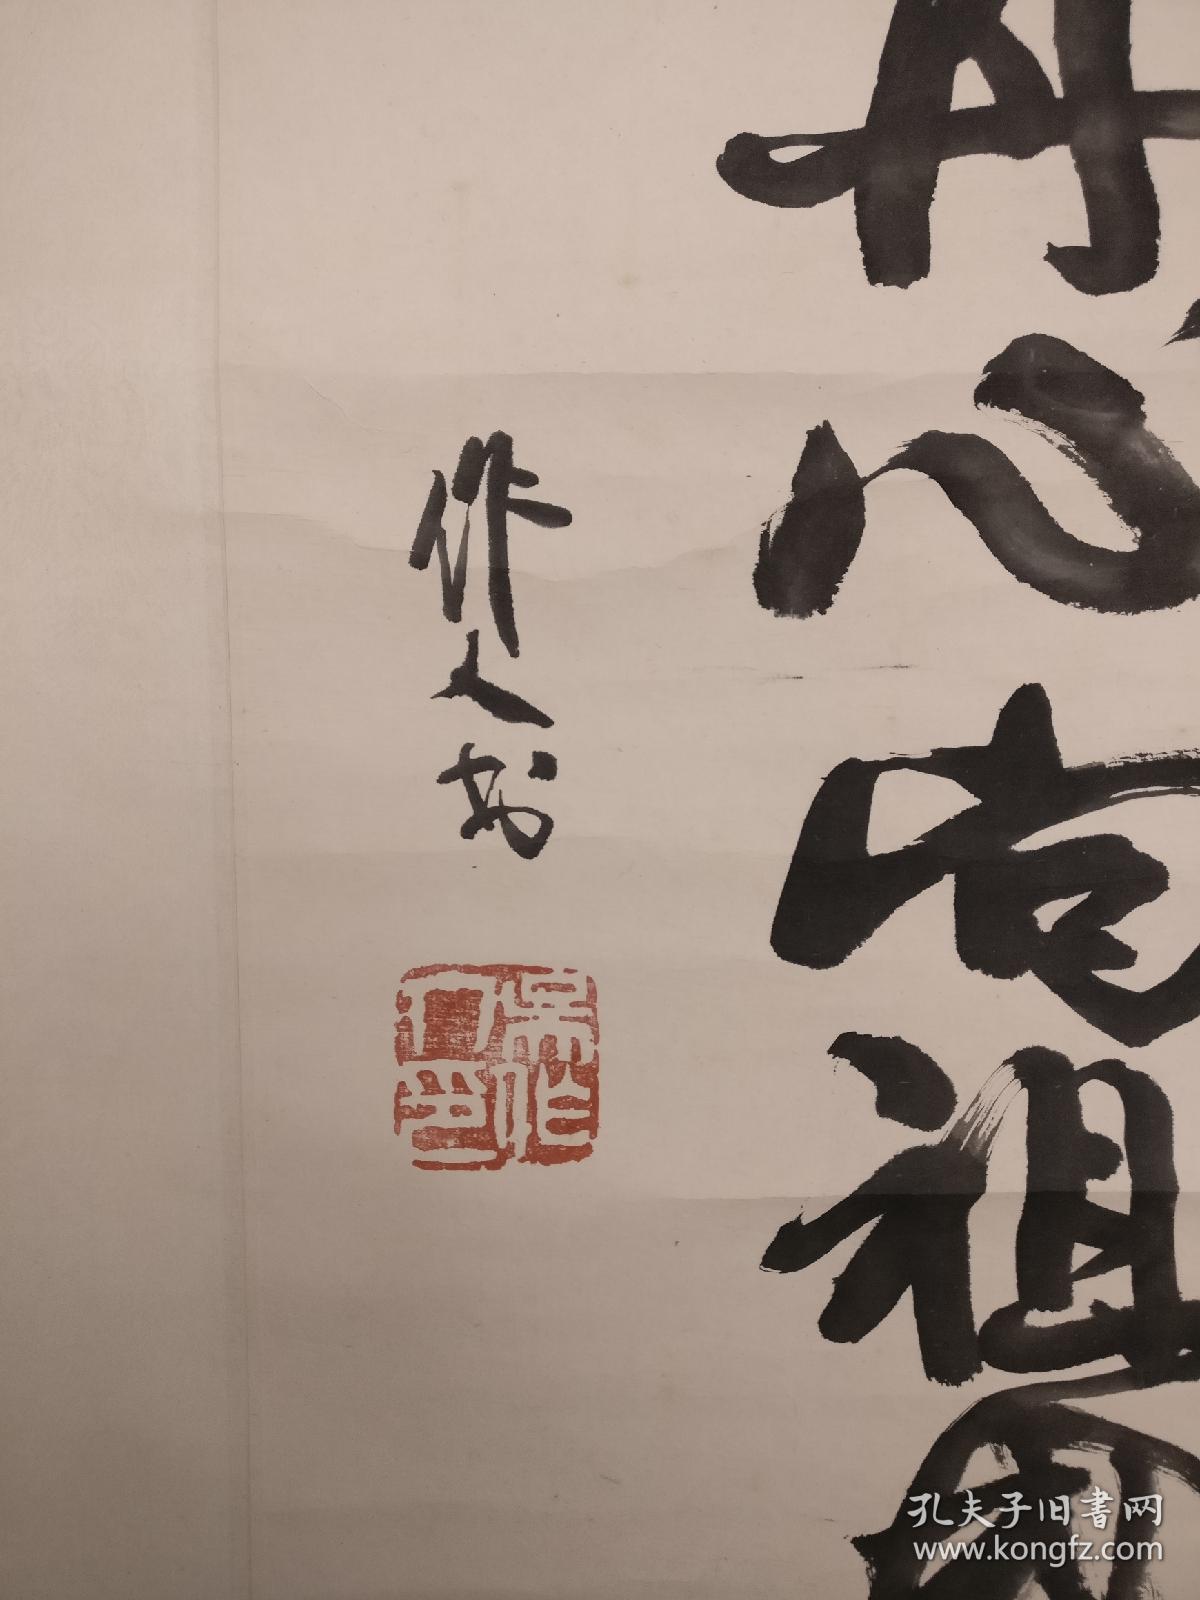 丹心向祖国
作人书
吴作
人印
孔夫子旧書网
www.kongfz.com